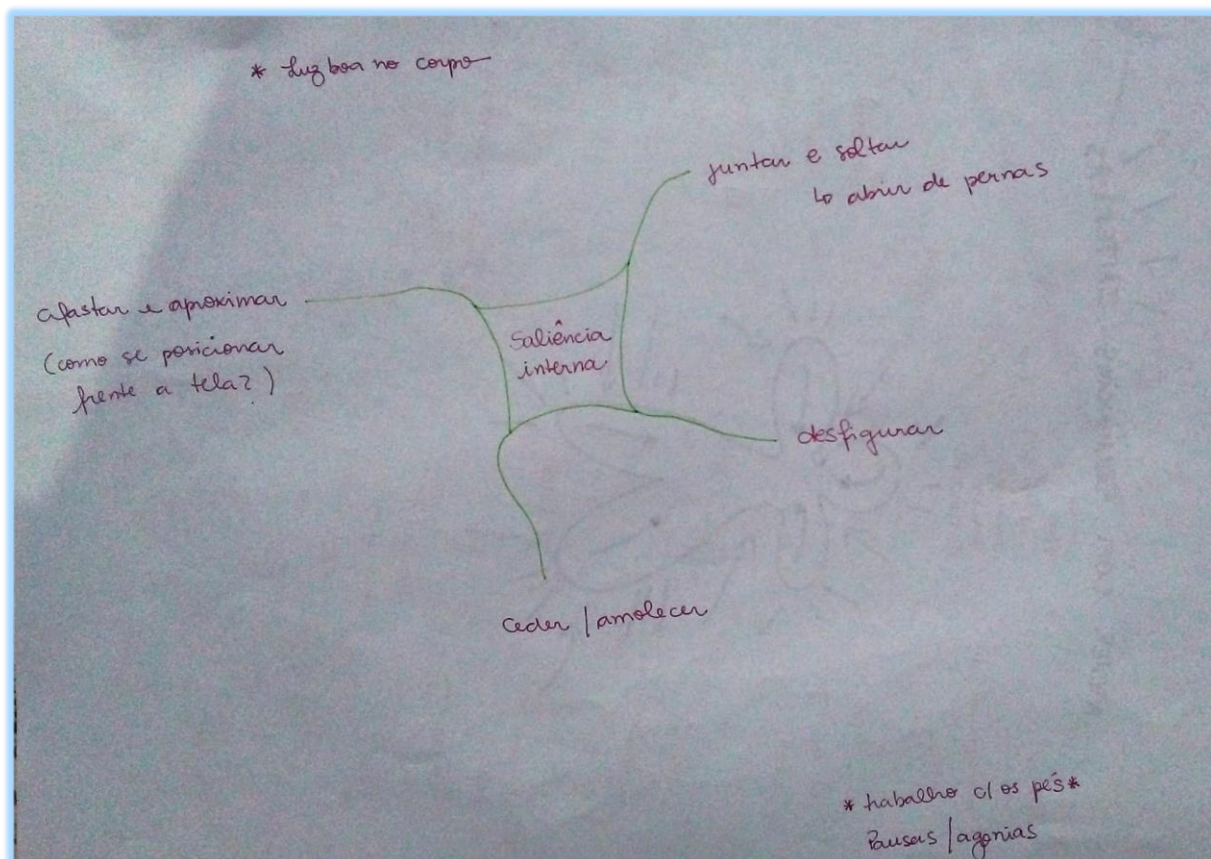 * Luz boa no corpo
juntar e soltar
↳ abrir de pernas
afastar e aproximar
(como se posicionar
frente a tela?)
Saliência
interna
desfigurar
Ceder / amolecer
* trabalho c/ os pés *
Pausas / agonias